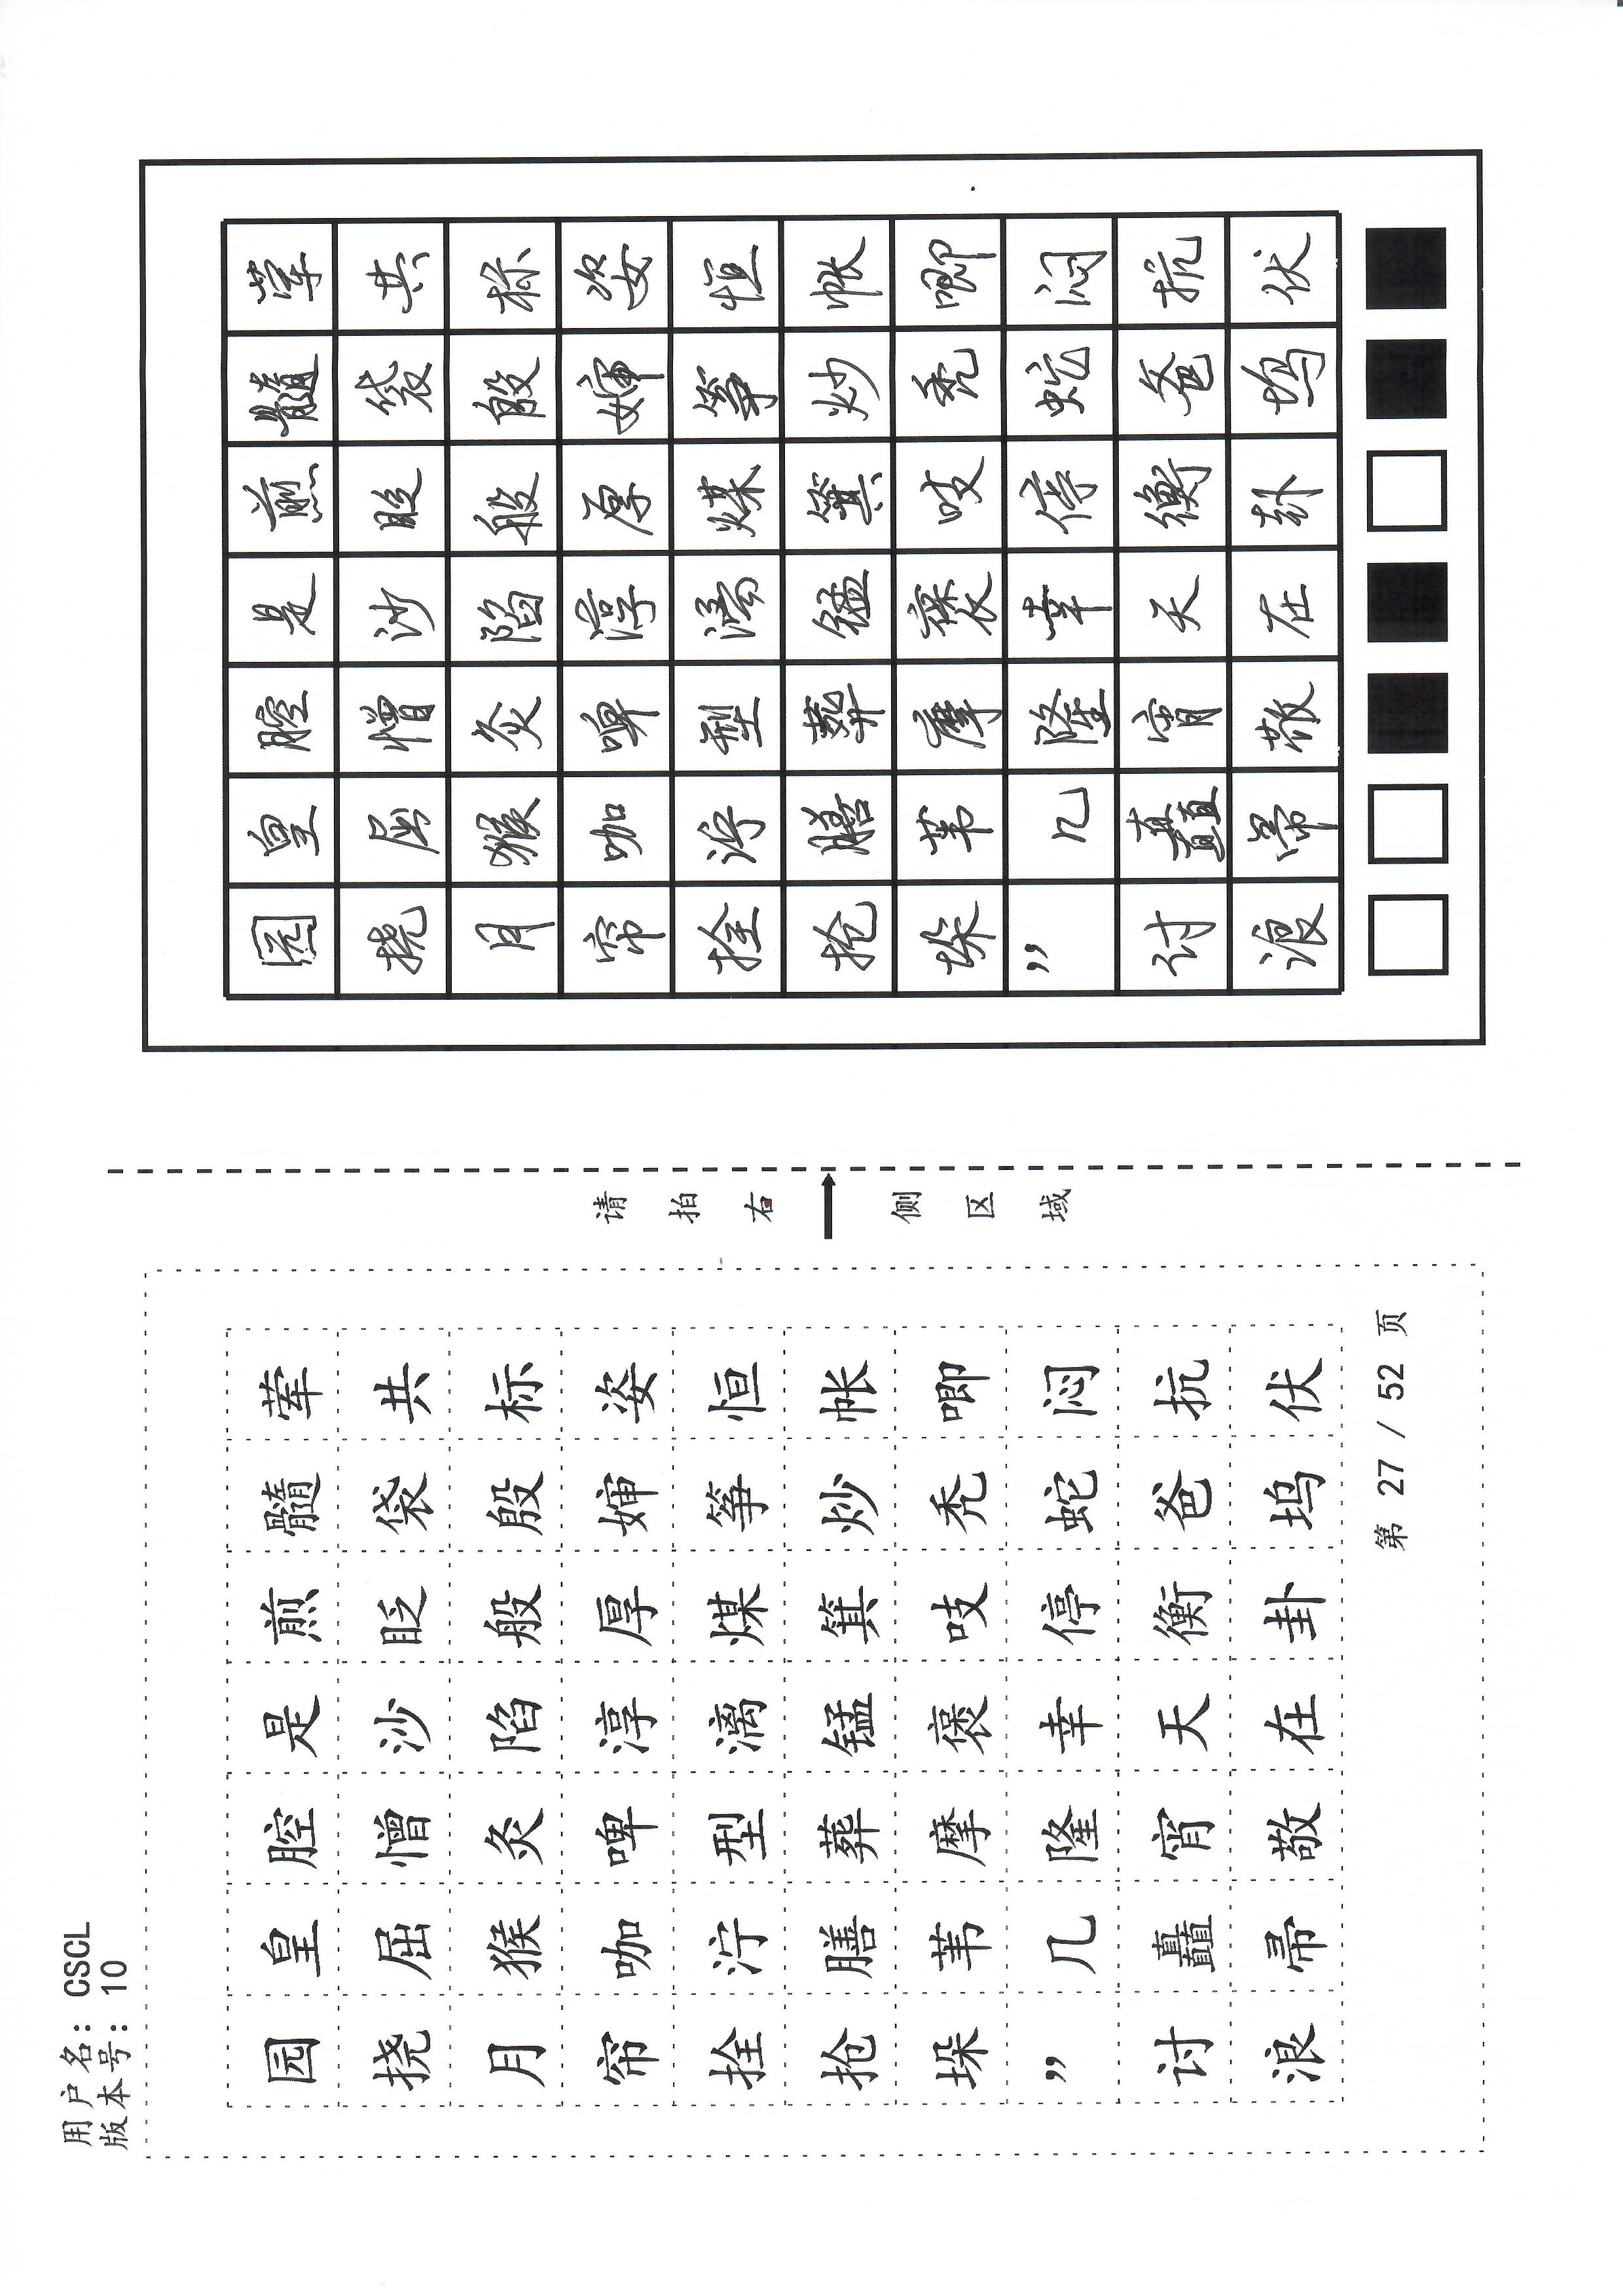 用户名: CSCL
版本号: 10
园 皇 腔 是 煎 髓 荤
挠 屈 憎 沙 眨 袋 共
月 猴 灸 陷 般 殷 标
帘 咖 啤 淳 厚 婶 姿
拴 泞 型 漓 煤 筝 恒
抢 膳 葬 锰 箕 炒 帐
垛 苇 摩 褒 吱 秃 唧
” 几 隆 幸 停 蛇 闷
讨 矗 宵 天 衡 爸 抗
浪 帚 敬 在 卦 坞 伏
第 27 / 52 页
请拍右侧区域
园 皇 腔 是 煎 髓 荤
挠 屈 憎 沙 眨 袋 共
月 猴 灸 陷 般 殷 标
帘 咖 啤 淳 厚 婶 姿
拴 泞 型 漓 煤 筝 恒
抢 膳 葬 锰 箕 炒 帐
垛 苇 摩 褒 吱 秃 唧
” 几 隆 幸 停 蛇 闷
讨 矗 宵 天 衡 爸 抗
浪 帚 敬 在 卦 坞 伏